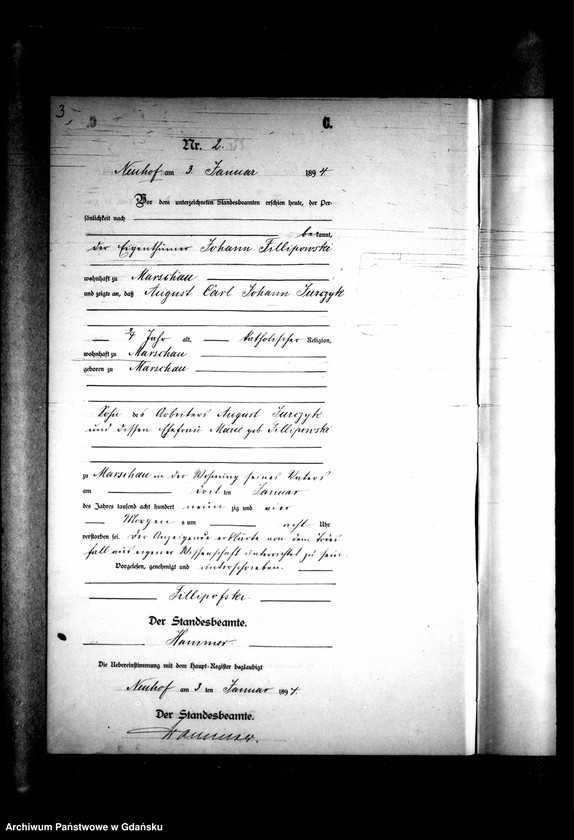 3
C.
Nr. 2.
Neuhof am 3. Januar 1894
Vor dem unterzeichneten Standesbeamten erschien heute, der Per-
sönlichkeit nach
bekannt,
der Eigenthümer Johann Fillipowski
wohnhaft zu Marschau
und zeigte an, daß August Carl Johann Jurczyk
3/4 Jahr alt, katholischer Religion,
wohnhaft zu Marschau
geboren zu Marschau
Sohn des Arbeiters August Jurczyk
und dessen Ehefrau Marie geb Fillipowski
zu Marschau in der Wohnung seines Vaters
am ten Januar
des Jahres tausend acht hundert neun zig und vier
Morgens um acht Uhr
verstorben sei. Der Anzeigende erklärte von dem Todes
fall aus eigener Wissenschaft unterrichtet zu sein.
Vorgelesen, genehmigt und unterschrieben.
Fillipofski.
Der Standesbeamte.
Hammer.
Die Uebereinstimmung mit dem Haupt-Register beglaubigt
Neuhof am 3 ten Januar 1894.
Der Standesbeamte.
Hammer.
Archiwum Państwowe w Gdańsku